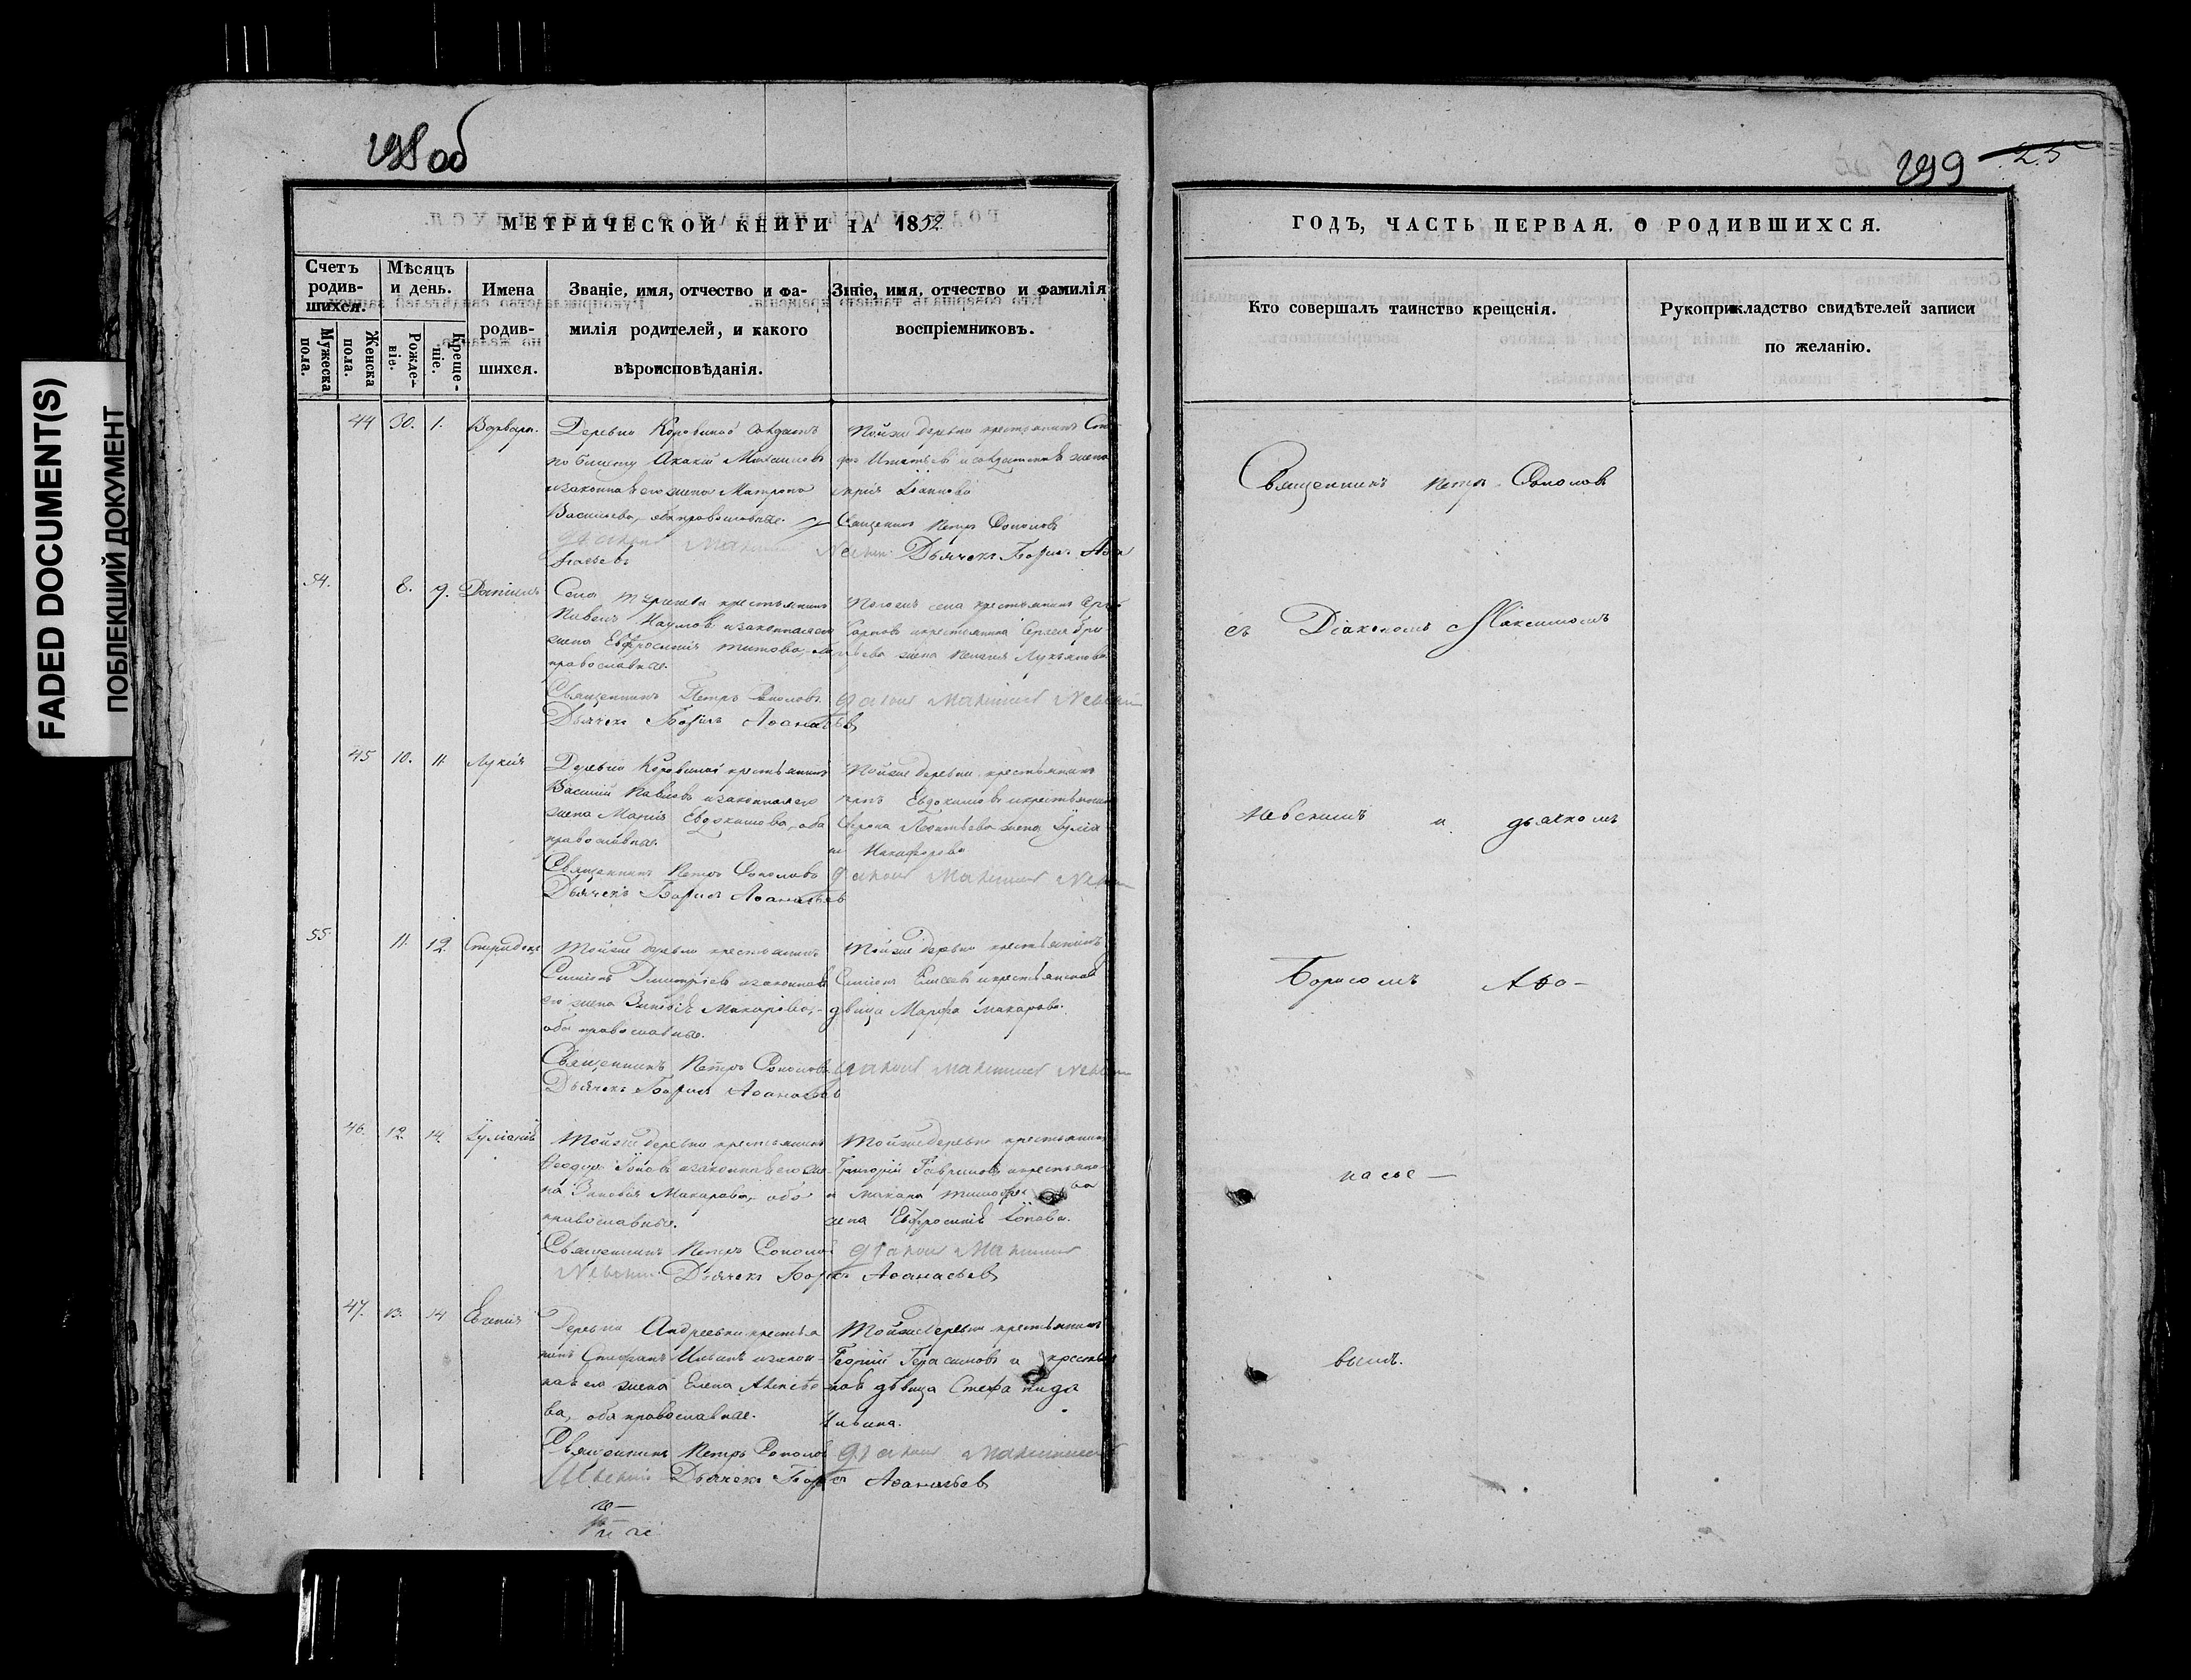 298 об
299 25
FADED DOCUMENT(S)
ПОБЛЕКШИЙ ДОКУМЕНТ
МЕТРИЧЕСКОЙ КНИГИ НА 1852
Счетъ родив-шихся.
Мужеска пола.
Женска пола.
Мѣсяцъ и день.
Рожде-ніе.
Креще-ніе.
Имена
родив-
шихся.
Званіе, имя, отчество и фа-
милія родителей, и какого
вѣроисповѣданія.
Званіе, имя, отчество и фамилія
воспріемниковъ.
44 30. 1. Варвара.
Деревни Коровиной
Акакій Михаиловъ
и законная его жена Матрона
Васильева, оба православные.
Тойже деревни крестьянинъ
жена
Іоаннова
Священникъ Петръ Соколовъ
Дьячекъ Борисъ Афа
насьевъ
54. 8. 9. Даніилъ
Села крестьянинъ
Наумовъ и законная его
жена Евфросинія Титова,
православные.
села крестьянинъ
Карповъ и крестьянина Сергея
жена Пелагія Лукьянова
Священникъ Петръ Соколовъ Діаконъ Максимъ Невскій
Дьячекъ Борисъ Аѳанасьевъ
45 10. 11. Лукія
Деревни Коровиной крестьянинъ
Василій Павловъ и законная его
жена Марія Евдокимова, оба
православные.
Тойже деревни крестьянинъ
Евдокимовъ и крестьянина
Леонтьева жена Іуліа-
Никифорова
Священникъ Петръ Соколовъ Діаконъ Максимъ Невскій
Дьячекъ Борисъ Аѳанасьевъ
55 11. 12. Спиридонъ
Тойже деревни крестьянинъ
Симеонъ Димитріевъ и законная
его жена Зиновія Макарова,
оба православные.
Тойже деревни крестьянинъ
Симеонъ Елисеевъ и крестьянская
дѣвица Марфа Макарова.
Священникъ Петръ Соколовъ Діаконъ Максимъ Невскій
Дьячекъ Борисъ Аѳанасьевъ
46. 12. 14. Іуліанія
Тойже деревни крестьянинъ
Ѳеодоръ Іоновъ и законная его же-
на Зиновія Макарова, оба
православные.
Тойже деревни крестьянинъ
Григорій Гавриловъ и крестьяни-
на Макара
жена Евфросинія Іонова.
Священникъ Петръ Соколовъ Діаконъ Максимъ
Невскій Дьячекъ Борисъ Аѳанасьевъ
47. 13. 14 Евгенія
Деревни Андреевки крестья
нинъ Стефанъ Ильинъ и закон-
ная его жена Елена Алексѣе
ва, оба православные.
Тойже деревни крестьянинъ
Георгій Герасимовъ и крестьян
ская дѣвица Стефанида
Ильина.
Священникъ Петръ Соколовъ Діаконъ Максимъ
Невскій Дьячекъ Борисъ Аѳанасьевъ
ГОДЪ, ЧАСТЬ ПЕРВАЯ, О РОДИВШИХСЯ.
Кто совершалъ таинство крещенія.
Рукоприкладство свидѣтелей записи
по желанію.
Священникъ Петръ Соколовъ
съ Діакономъ Максимомъ
Невскимъ и дьячкомъ
Борисомъ Аѳа-
насье-
вымъ.